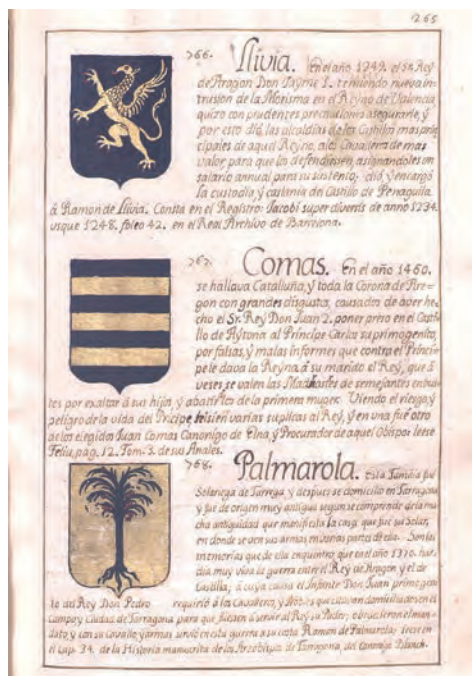 265
766. Llivia. En el año 1249. el Sr. Rey
de Aragon Don Jayme I. temiendo nueva in-
trusion de la Morisma en el Reyno de Valencia,
quizo con prudentes precauciones asegurarle, y
por esto dió las alcaldías de los Castillos mas prin-
cipales de aquel Reyno, a los Cavalleros de mas
valor para que los defendiessen, asignandoles un
salario annual para su sustento; dió, y encargó
la custodia, y castlania del Castillo de Penaguila
á Ramon de Llivia. Consta en el Registro: Iacobi super diversis de anno 1234.
usque 1248. foleo 42. en el Real Archivo de Barcelona.
767. Comas. En el año 1460.
se hallava Cataluña, y toda la Corona de Ara-
gon con grandes disgustos, causados de aver he-
cho el Sr. Rey Don Juan 2. poner preso en el Casti-
llo de Aytona al Principe Carlos su primogenito,
por falsos, y malos informes que contra el Princi-
pe le dava la Reyna, á su marido el Rey, que á
veses se valen las Madrastas de semejantes embus-
tes por exaltar á sus hijos, y abatir los de la primera muger. Viendo el riesgo, y
peligro de la vida del Principe, hisieron varias suplicas al Rey, y en una fue otro
de los elegidos Juan Comas Canonigo de Elna, y Procurador de aquel Obispo: leese
Feliu, pag. 12. Tom. 3. de sus Anales.
768. Palmarola. Esta Familia fue
Solariega de Tarrega y despues se domicilió en Tarragona
y fue de origen muy antiguo segun se comprende de la mu-
cha antiguedad que manifiesta la casa que fue su Solar,
en donde se ven sus armas en varias partes de ella. Son las
memorias que de ella encuentro que en el año 1370. havi-
dia muy viva la guerra entre el Rey de Aragon y el de
Castilla, á cuya causa el Infante Don Juan primogeni-
to del Rey Don Pedro requirió á los Cavalleros, y Nobles que estavan domiciliados en el
Campo y Ciudad de Tarragona para que fuesen á servir al Rey su Padre; obedecieron el man-
dato y con su Cavallo y armas sirvió en esta guerra á su costa Ramon de Palmarola; leese en
el cap. 34. de la Historia manuscrita de los Arzobispos de Tarragona, del Canonigo Blanch.